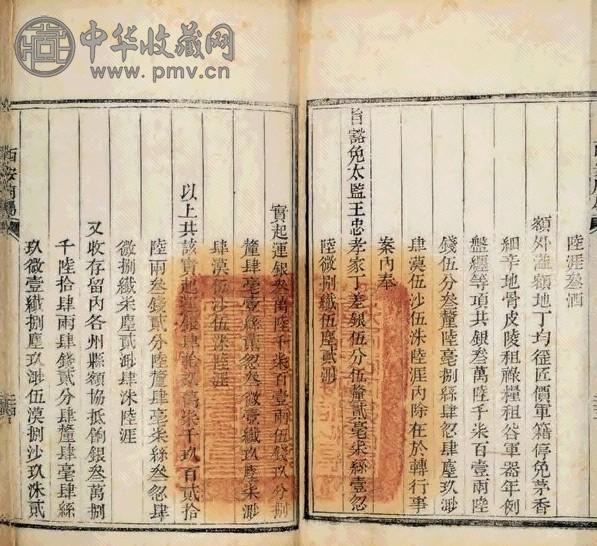 中华收藏网
www.pmv.cn
陸涯叁泗
額外溢額地丁均徭匠價軍籍停免茅香
細辛地骨皮陵租祿糧租谷軍器年例
盤纏等項共銀叁萬陸千柒百壹兩陸
錢伍分叁釐陸毫捌絲肆忽肆塵玖渺
肆漠伍沙伍洙陸涯內除在於轉行事
案內奉
旨豁免太監王忠孝家丁差銀伍分伍釐貳毫柒絲壹忽
陸微捌纖伍塵貳渺
實起運銀叁萬陸千柒百壹兩伍錢玖分捌
釐肆毫壹絲貳忽叁微壹纖玖塵柒渺
肆漠伍沙伍洙陸涯
以上共該實起運銀肆拾柒千玖百貳拾
陸兩叁錢貳分陸釐肆毫柒絲叁忽肆
微捌纖柒塵貳渺肆洙陸涯
又收存留內各州縣額協抵餉銀叁萬捌
千陸拾肆兩肆錢貳分肆釐肆毫肆絲
玖微壹纖捌塵玖渺伍漠捌沙玖洙貳
西安府